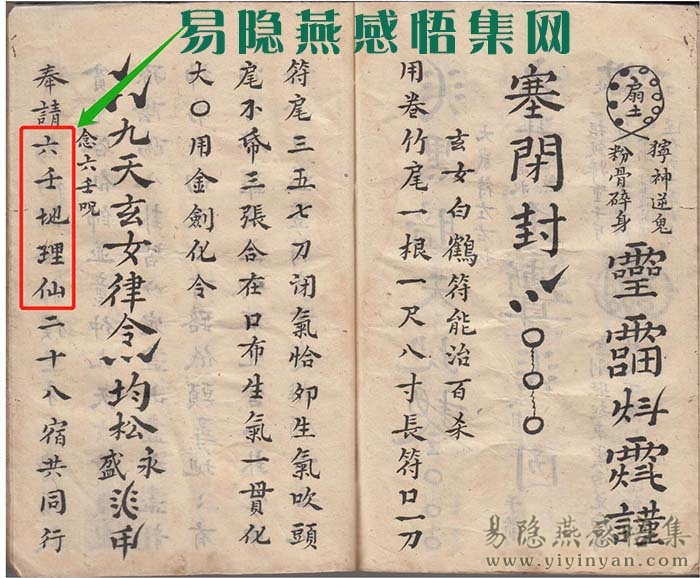 易隐燕感悟集网
獰神逆鬼
粉骨碎身
塞閉封
玄女白鶴符能治百杀
用卷竹尾一根一尺八寸長符口一刀
符尾三五七刀闭氣恰卯生氣吹頭
尾不帋三張合在口布生氣一貫化
大〇用金劍化令
九天玄女律令均松
永盛
念六壬呪
奉請六壬地理仙二十八宿共同行
易隐燕感悟集
www.yiyinyan.com